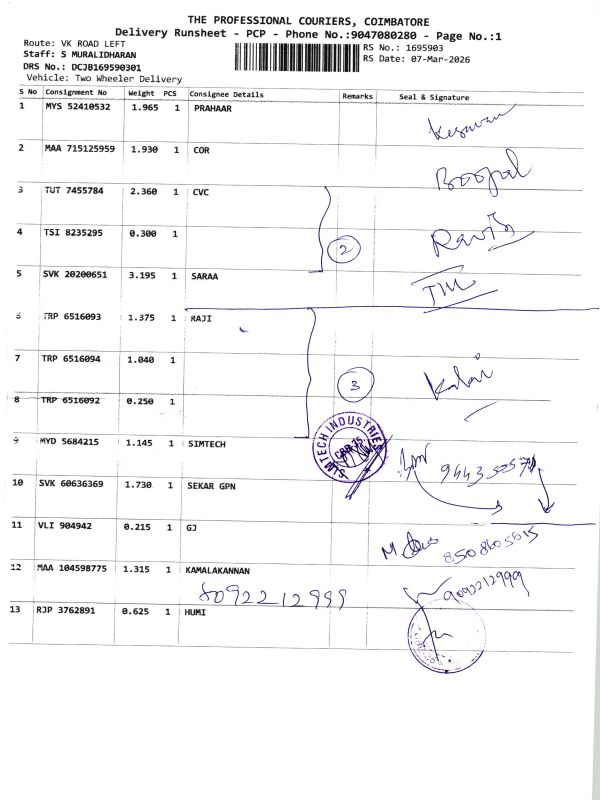 THE PROFESSIONAL COURIERS, COIMBATORE
Delivery Runsheet - PCP - Phone No.:9047080280 - Page No.:1
Route: VK ROAD LEFT
RS No.: 1695903
Staff: S MURALIDHARAN
RS Date: 07-Mar-2026
DRS No.: DCJB169590301
Vehicle: Two Wheeler Delivery
S No Consignment No Weight PCS Consignee Details Remarks Seal & Signature
1 MYS 52410532 1.965 1 PRAHAAR
2 MAA 715125959 1.930 1 COR Boopal
3 TUT 7455784 2.360 1 CVC
4 TSI 8235295 0.300 1 2
5 SVK 20200651 3.195 1 SARAA
6 TRP 6516093 1.375 1 RAJI
7 TRP 6516094 1.040 1
8 TRP 6516092 0.250 1 3
9 MYD 5684215 1.145 1 SIMTECH SIMTECH INDUSTRIES
10 SVK 60636369 1.730 1 SEKAR GPN
11 VLI 904942 0.215 1 GJ
12 MAA 104598775 1.315 1 KAMALAKANNAN
8092212999 9092212999
13 RJP 3762891 0.625 1 HUMI